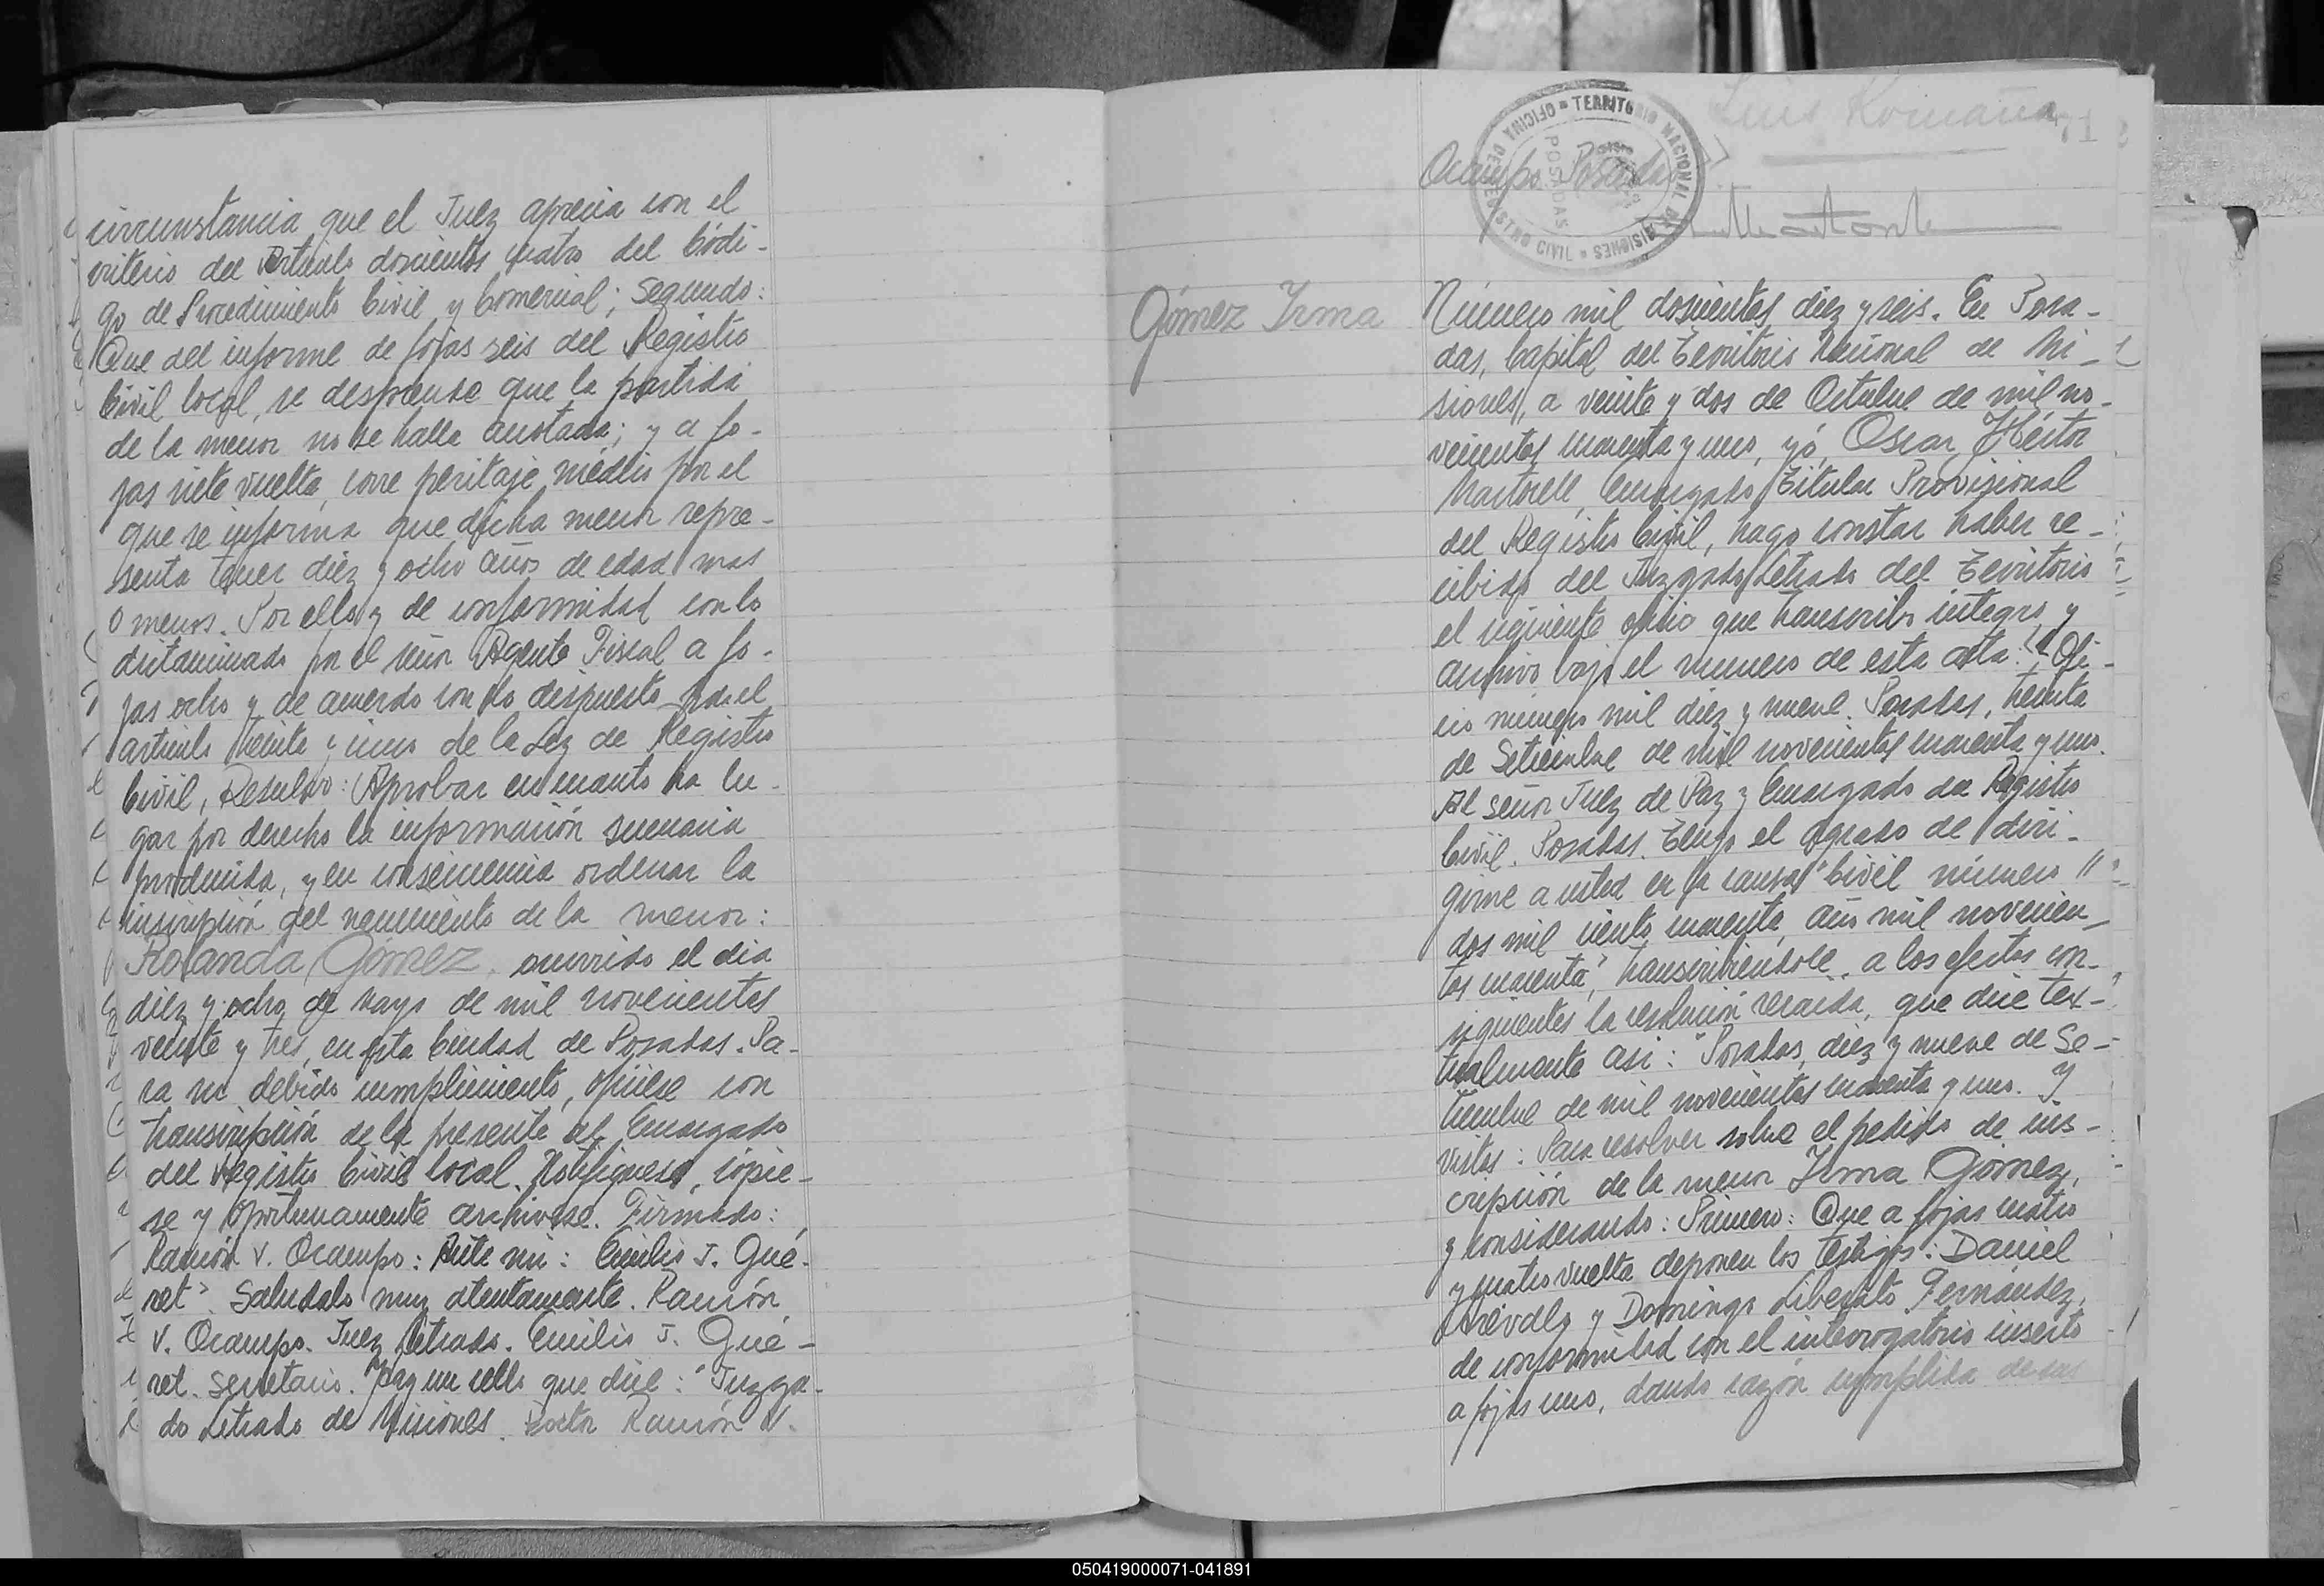 circunstancia que el Juez aprecia con el
criterio del Artículo doscientos cuatro del Códi-
go de Procedimiento Civil y Comercial; Segundo:
Que del informe de fojas seis del Registro
Civil local, se desprende que la partida
de la menor no se halla anotada; y a fo-
jas siete vuelta, corre peritaje médico por el
que se informa que dicha menor repre-
senta tener diez y ocho años de edad mas
o menos. Por ello y de conformidad con lo
dictaminado por el señor Agente Fiscal a fo-
jas ocho y de acuerdo con lo dispuesto por el
artículo treinta y uno de la Ley de Registro
Civil, Resuelvo: Aprobar en cuanto ha lu-
gar por derecho la información sumaria
producida, y en consecuencia ordenar la
inscripción del nacimiento de la menor:
Rolanda Gómez, ocurrido el dia
diez y ocho de Mayo de mil novecientos
veinte y tres, en esta Ciudad de Posadas. Pa-
ra su debido cumplimiento, ofíciese con
transcripción de la presente al Encargado
del Registro Civil local. Notifíquese, cópie-
se y oportunamente archívese. Firmado:
Ramón V. Ocampo: Ante mi: Emilio J. Gué-
ret". Saludalo muy atentamente. Ramón
V. Ocampo. Juez Letrado. Emilio J. Gué-
ret. Secretario. Hay un sello que dice: "Juzga-
do Letrado de Misiones. Doctor Ramón V.
Luis Romaña
Ocampo Posadas
OFICINA DE REGISTRO CIVIL TERRITORIO NACIONAL DE MISIONES
POSADAS
Gómez Irma
Número mil doscientos diez y seis. En Posa-
das, Capital del Territorio Nacional de Mi-
siones, a veinte y dos de Octubre de mil no-
vecientos cuarenta y uno, yó, Oscar Héctor
Martorell, Encargado Titular Provisional
del Registro Civil, hago constar haber re-
cibido del Juzgado Letrado del Territorio
el siguiente oficio que transcribo integro y
archivo bajo el numero de esta acta: "Ofi-
cio número mil diez y nueve. Posadas, treinta
de Setiembre de mil novecientos cuarenta y uno.
Al señor Juez de Paz y Encargado de Registro
Civil. Posadas. Tengo el agrado de diri-
girme a usted en la causa "Civil número
dos mil ciento cuarenta, año mil novecien-
tos cuarenta", transcribiéndole, a los efectos con-
siguientes la resolución recaída, que dice tex-
tualmente asi: "Posadas, diez y nueve de Se-
tiembre de mil novecientos cuarenta y uno. Y
vistos: Para resolver sobre el pedido de ins-
cripción de la menor Irma Gómez,
y considerando: Primero: Que a fojas cuatro
y cuatro vuelta deponen los testigos: Daniel
Arévalo y Domingo Liberato Fernández,
de conformidad con el interrogatorio inserto
a fojas uno, dando razón cumplida de sus
050419000071-041891